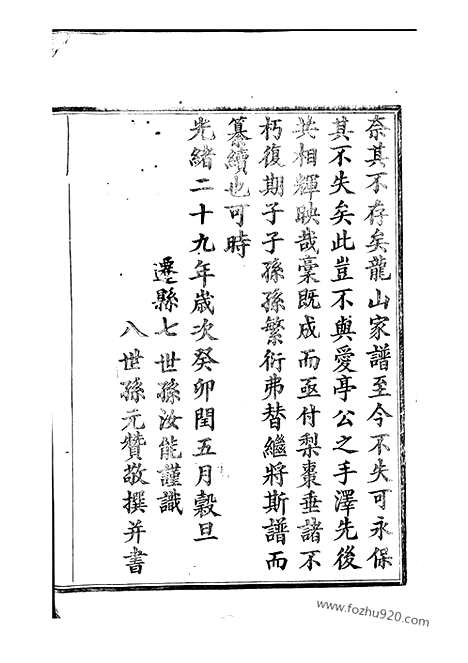 奈其不存矣龍山家譜至今不失可永保
其不失矣此豈不與愛亭公之手澤先後
共相輝映哉稾既成而亟付梨棗垂諸不
朽復期子子孫孫繁衍弗替繼將斯譜而
纂續也可時
光緒二十九年歲次癸卯閏五月穀旦
遷縣七世孫汝能謹識
八世孫元贊敬撰并書
www.fozhu920.com